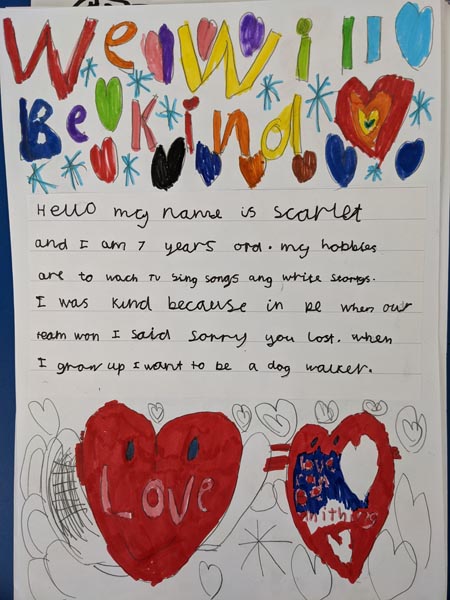 We Will
Be kind
Hello my name is scarlet
and I am 7 years ord. my hobbies
are to wach TV sing songs ang write storys.
I was kind because in pe when our
team won I said sorry you lost. when
I grow up I want to be a dog walker.
Love